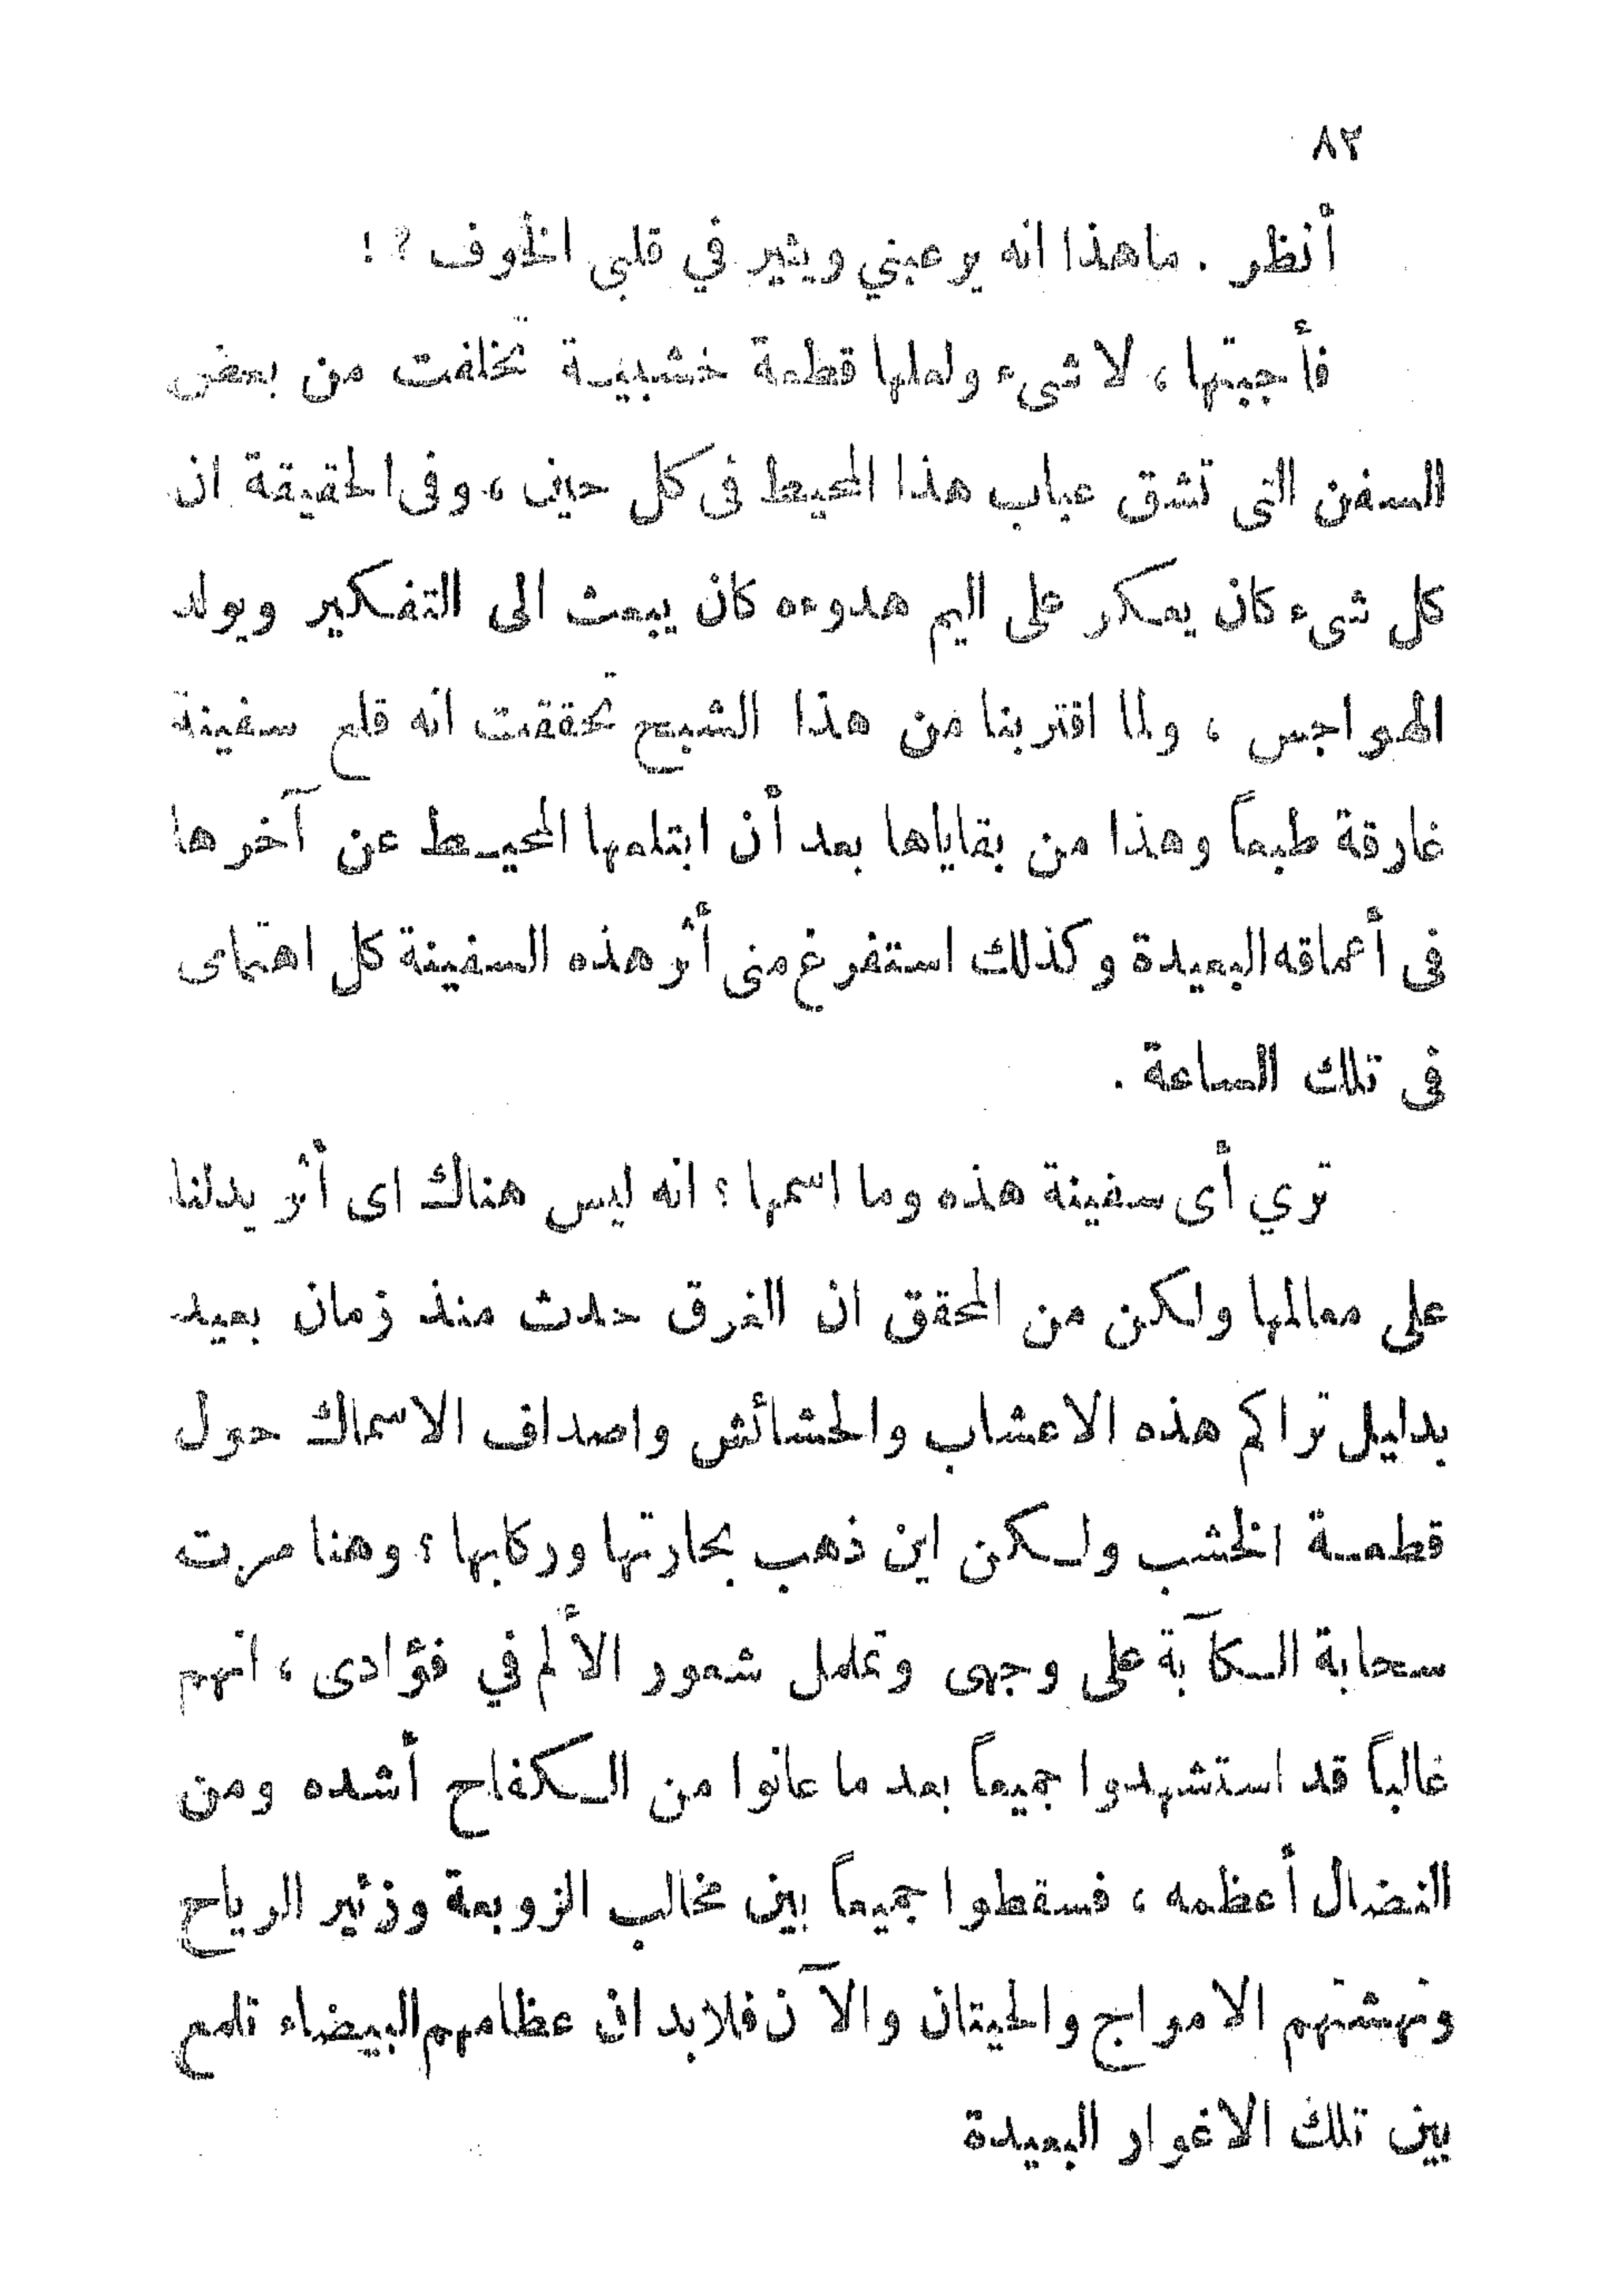 ٨٢
أنظر . ماهذا انه يرعبني ويثير في قلبى الخوف ? !
فأجبتها ، لا شىء ولعلها قطعة خشبية تخلفت من بعض
السفن التى تشق عباب هذا المحيط فى كل حين ، وفى الحقيقة ان
كل شىء كان يعكر على اليم هدوءه كان يبعث الى التفكير ويولد
الهواجس ، ولما اقتربنا من هذا الشبح تحققت انه قلع سفينة
غارقة طبعاً وهذا من بقاياها بعد أن ابتلعها المحيط عن آخرها
فى أعماقه البعيدة وكذلك استفرغ منى أثر هذه السفينة كل اهتماى
فى تلك الساعة .
تري أى سفينة هذه وما اسمها ؟ انه ليس هناك اى أثر يدلنا
على معالمها ولكن من المحقق ان الغرق حدث منذ زمان بعيد
بدليل تراكم هذه الاعشاب والحشائش واصداف الاسماك حول
قطعة الخشب ولكن اين ذهب بحارتها وركابها ؟ وهنا مرت
سحابة الكآبة على وجهى وتململ شعور الألم في فؤادى ، انهم
غالباً قد استشهدوا جميعاً بعد ما عانوا من الكفاح أشده ومن
النضال أعظمه ، فسقطوا جميعاً بين مخالب الزوبعة وزئير الرياح
ونهشتهم الامواج والحيتان والآن فلابد ان عظامهم البيضاء تلمع
بين تلك الاغوار البعيدة